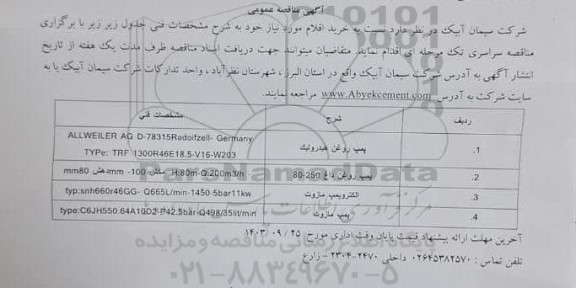 آگهی مناقصه عمومی
شرکت سیمان آبیک در نظر دارد نسبت به خرید اقلام مورد نیاز خود به شرح مشخصات فنی جدول زیر زیر با برگزاری
مناقصه سراسری تک مرحله ای اقدام نماید. متقاضیان میتوانند جهت دریافت اسناد مناقصه ظرف مدت یک هفته از تاریخ
انتشار آگهی به آدرس شرکت سیمان آبیک واقع در استان البرز ، شهرستان نظرآباد ، واحد تدارکات شرکت سیمان آبیک یا به
سایت شرکت به آدرس www.Abyekcement.com مراجعه نمایند.
ردیف شرح مشخصات فنی
1. پمپ روغن هیدرولیک ALLWEILER AG D-78315Radolfzell- Germany
TYPe: TRF 1300R46E18.5-V16-W203
2. پمپ روغن داغ 250-80 H:80m-Q:200m3/h مکش 100- mm دهش mm80
3. الکتروپمپ مازوت typ:snh660r46GG- Q665L/min-1450-5bar11kw
4. پمپ مازوت type:C6JH550.64A10D2-P42.5bar-Q498/35lit/min
آخرین مهلت ارائه پیشنهاد قیمت پایان وقت اداری مورخ: ۱۴۰۳/۰۹/۲۵
تلفن تماس : ۰۲۶۴۵۳۸۲۵۷۰ داخلی ۲۴۷۰-۲۳۰۴ - زارع
ParsNamadData
پایگاه اطلاع رسانی مناقصه و مزایده
۰۲۱-۸۸۳۴۹۶۷۰-۵